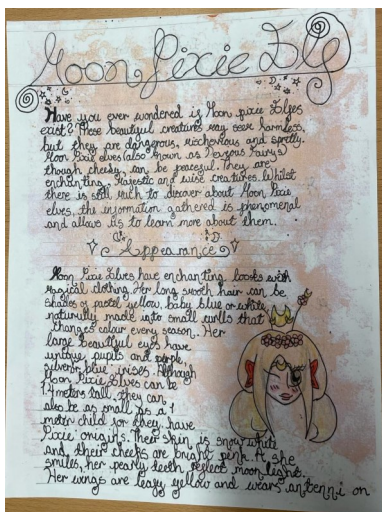 Moon Pixie Elf
Have you ever wondered if Moon pixie Elves
exist? These beautiful creatures may seem harmless,
but they are dangerous, mischevious and
Moon Pixie elves (also known as Fairys)
though cheeky, can be peaceful. They are
enchanting, Majestic and wise creatures. Whilst
there is still much to discover about Moon Pixie
elves, the information gathered is phenomenal
and allows us to learn more about them.
Appearance
Moon Pixie Elves have enchanting looks with
magical clothing. Her long smooth hair can be
shades of pastel yellow, baby blue or white,
naturally made into small curls that
changes colour every season. Her
large beautiful eyes have
unique pupils and purple,
silver or blue irises. Although
Moon Pixie Elves can be
1.4 meters tall, they can
also be as small as a 1
meter child for they have
Pixie origins. Their skin is snow white
and their cheeks are bright pink. As she
smiles, her pearly teeth reflect moon light.
Her wings are leafy yellow and wears antenni on